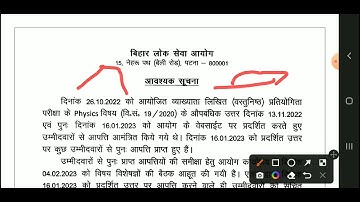 बिहार लोक सेवा आयोग
15, नेहरू पथ (बेली रोड), पटना - 800001
आवश्यक सूचना
दिनांक 26.10.2022 को आयोजित व्याख्याता लिखित (वस्तुनिष्ठ) प्रतियोगिता
परीक्षा के Physics विषय (वि.सं. 19/2020) के औपबंधिक उत्तर दिनांक 13.11.2022
एवं पुनः दिनांक 16.01.2023 को आयोग के वेबसाईट पर प्रदर्शित करते हुए
उम्मीदवारों से आपत्ति आमंत्रित किये गये थे। दिनांक 16.01.2023 को प्रदर्शित उत्तर
पर कुछ उम्मीदवारों से पुनः आपत्ति प्राप्त हुए हैं।
उम्मीदवारों से पुनः प्राप्त आपत्तियों की समीक्षा हेतु आयोग
04.02.2023 को विषय विशेषज्ञों की बैठक आहूत की गयी है।
16.01.2023 को प्रदर्शित उत्तर पर आपत्ति करने वाले ही उम्मीदवार को सूचित